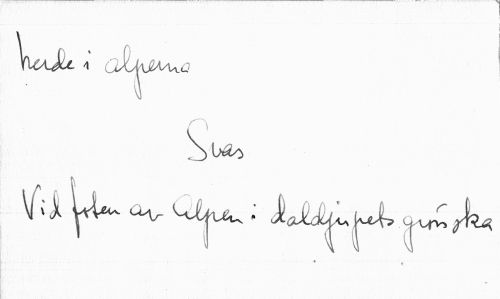 herde i alperna
Svas
Vid foten av Alpen i daldjupets grönska